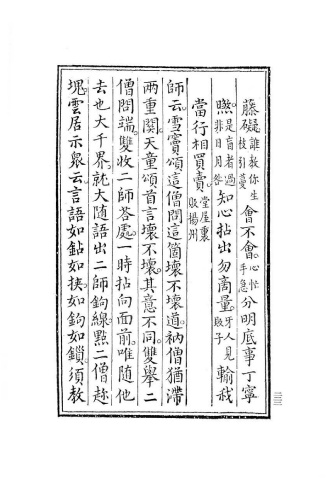 藤礙。誰教你生枝引蔓會不會。心忙手急分明底事丁寧
煞。是盲者過非日月咎知心拈出勿商量。牙人見販子輸我
當行相買賣。堂屋裏販揚州
師云。雪竇頌。這僧問這箇壞不壞道。衲僧猶滯
兩重關。天童頌首言壞不壞。其意不同。雙舉二
僧問端。雙收二師答處。一時拈向面前。唯隨他
去也大千界。就大隨語出二師鉤線。點二僧趂
塊。雲居示眾云。言語如鉆如挾如鉤如鎖。須教